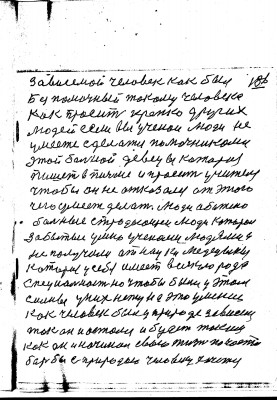 зависемой человек как был
Безпомочный такому человека
как просит кратко других
людей если вы ученои люди не
умеете сделать помочниками
этой больной девецы которая
пишет в письме и просит учителя
чтобы он не отказал от этого
чего умеет делать. Люди обижено
больные страдающии люди которои
забытые умно учеными людями и
не получали от науки Медецыны
которы у себя имеет всякую рода
специальност но чтобы были у этом
силны у них нету на это умение
как человек был у природе зависем
так он и остался и будет такии
как он и начинал своего
борбы с природаю человику хочту